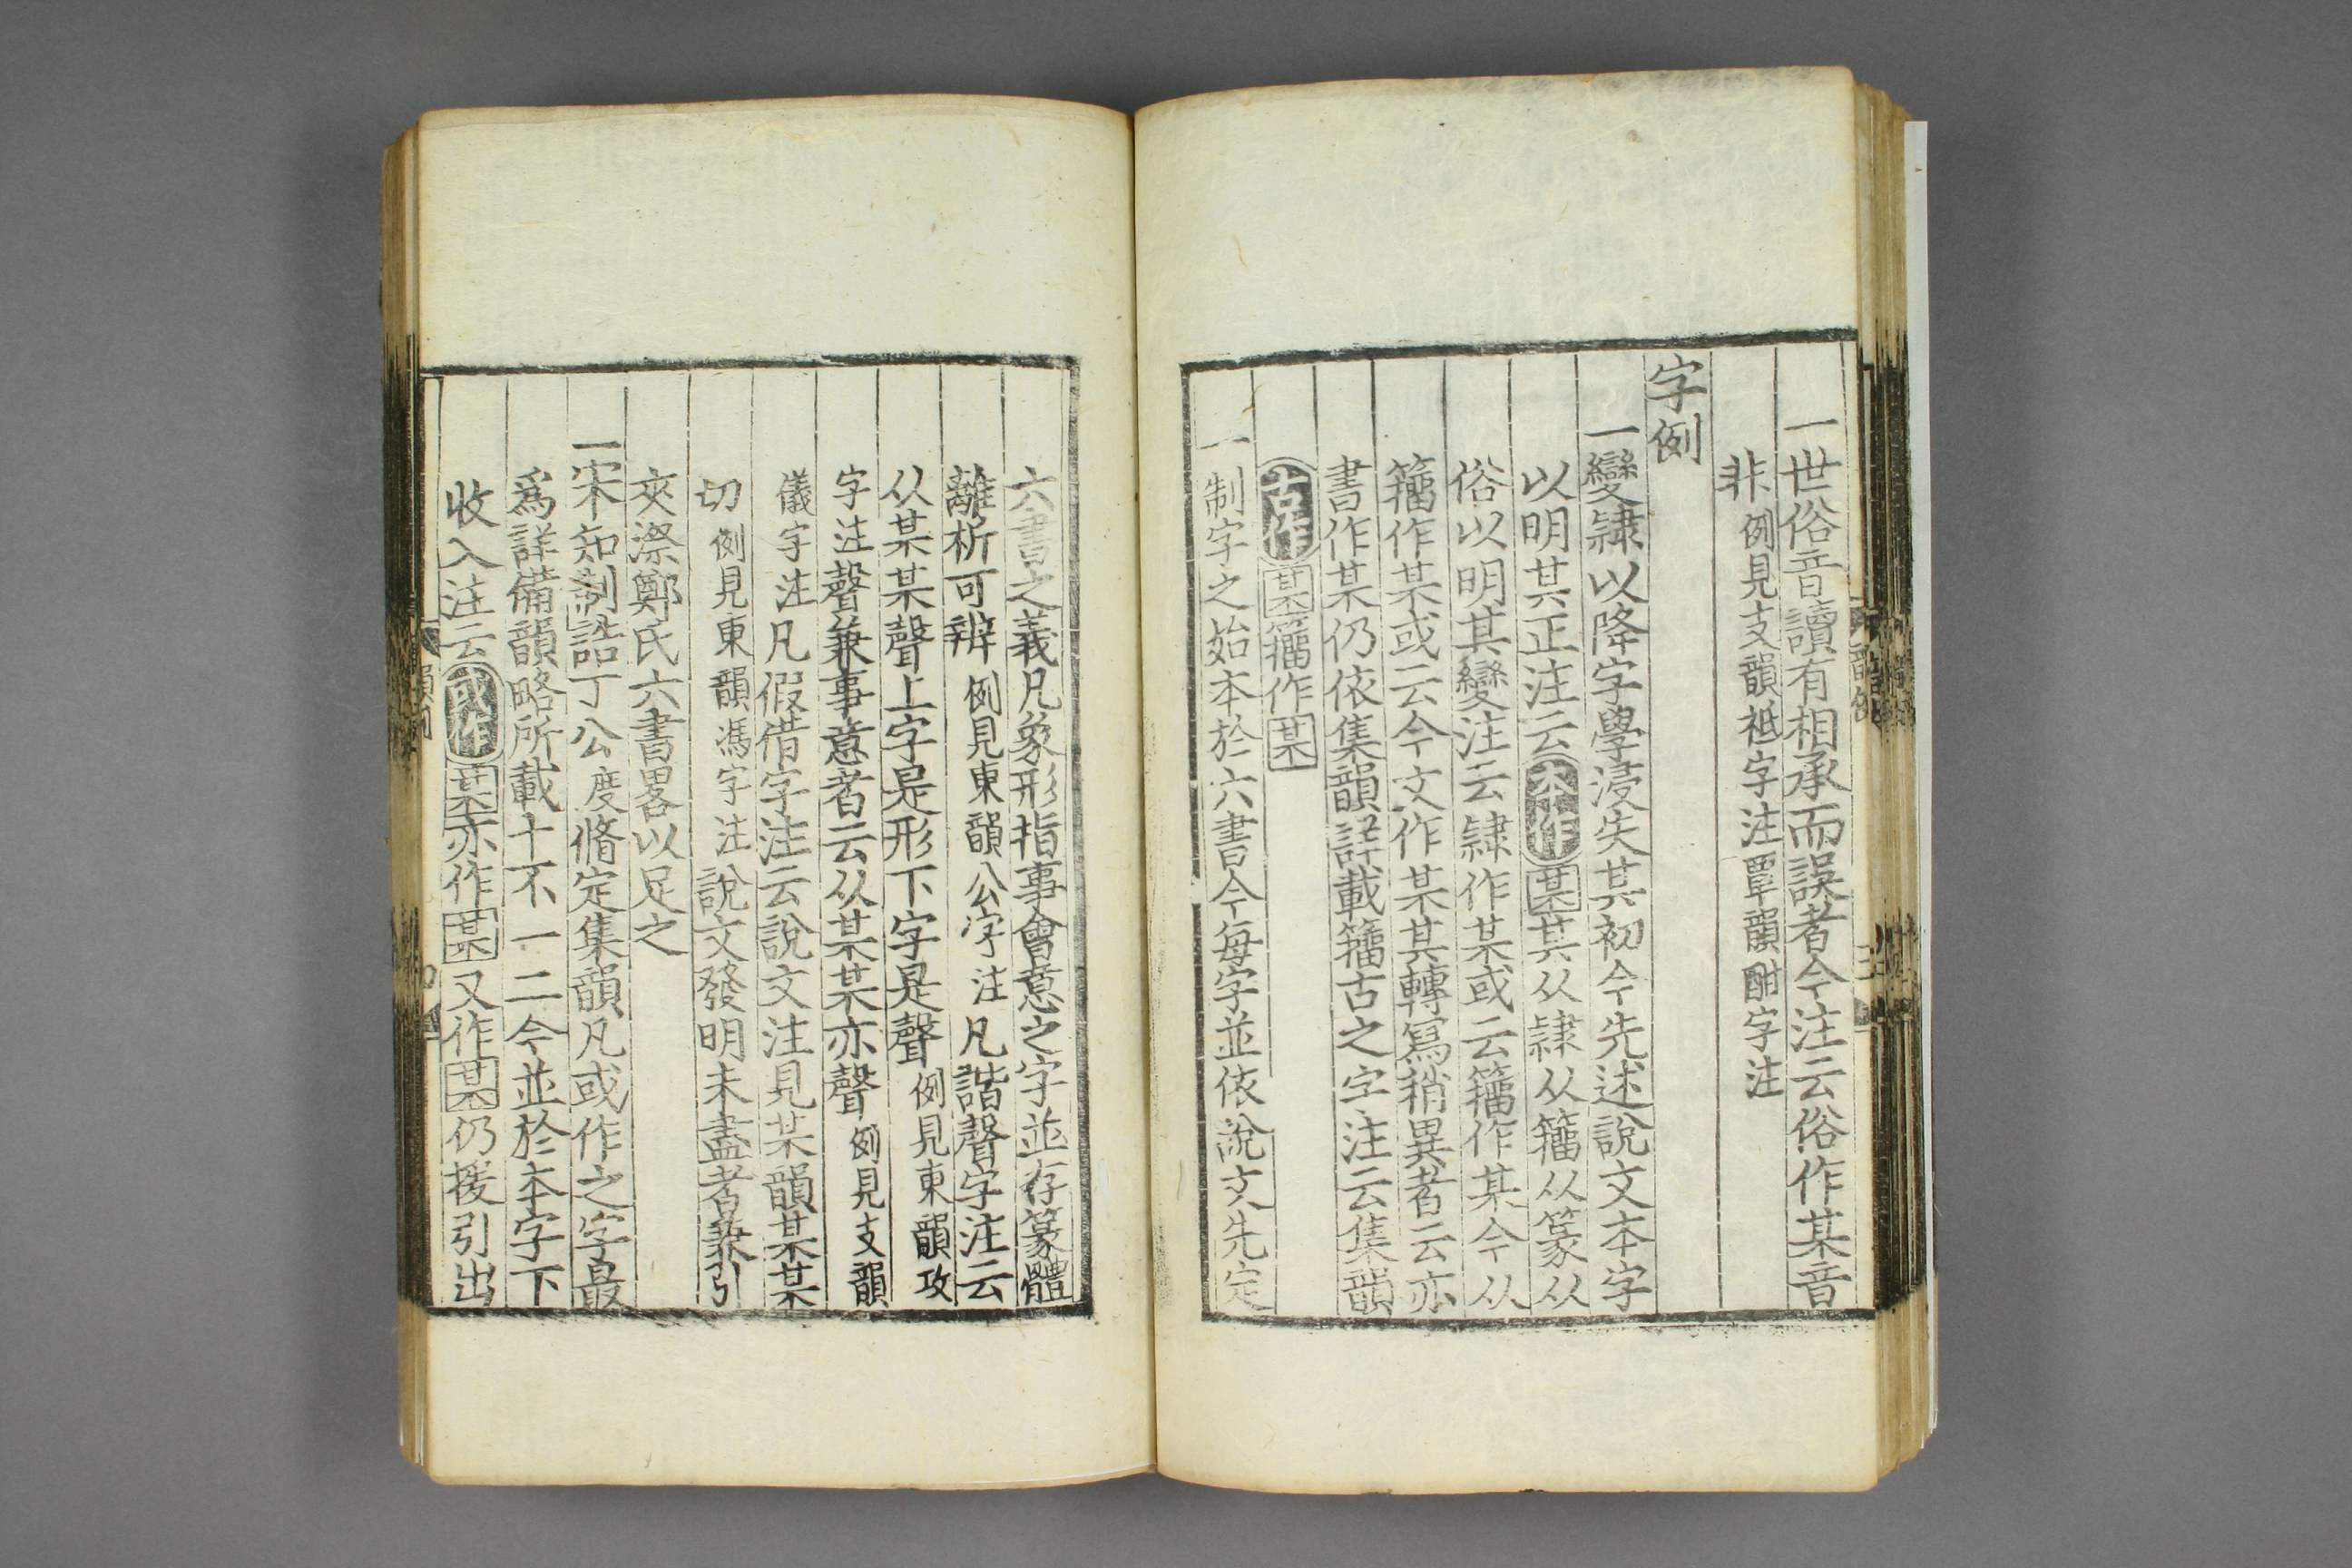 一世俗音讀有相承而誤者今注云俗作某音
非例見支韻祗字注覃韻酣字注
字例
一變隷以降字學浸失其初今先述說文本字
以明其正注云本作某其从隷从籀从篆从
俗以明其變注云隷作某或云籀作某今从
籀作某或云今文作某其轉寫稍異者云亦
書作某仍依集韻詳載籀古之字注云集韻
古作某籀作某
一制字之始本於六書今每字並依說文先定
六書之義凡象形指事會意之字並存篆體
離析可辨例見東韻公字注凡諧聲字注云
从某某聲上字是形下字是聲例見東韻攻
字注聲兼事意者云从某某亦聲例見支韻
儀字注凡假借字注云說文注見某韻某某
切例見東韻馮字注說文發明未盡者兼引
夾漈鄭氏六書畧以足之
一宋知制誥丁公度脩定集韻凡或作之字最
爲詳備韻略所載十不一二今並於本字下
收入注云或作某亦作某又作某仍援引出